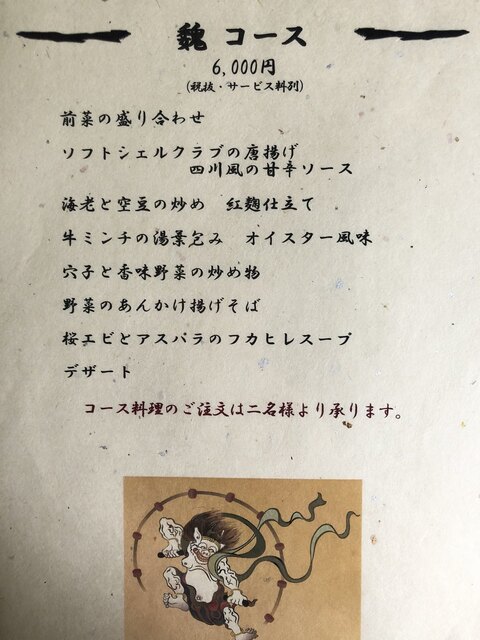 魏 コース
6,000円
(税抜・サービス料別)
前菜の盛り合わせ
ソフトシェルクラブの唐揚げ
四川風の甘辛ソース
海老と空豆の炒め 紅麹仕立て
牛ミンチの湯葉包み オイスター風味
穴子と香味野菜の炒め物
野菜のあんかけ揚げそば
桜エビとアスパラのフカヒレスープ
デザート
コース料理のご注文は二名様より承ります。